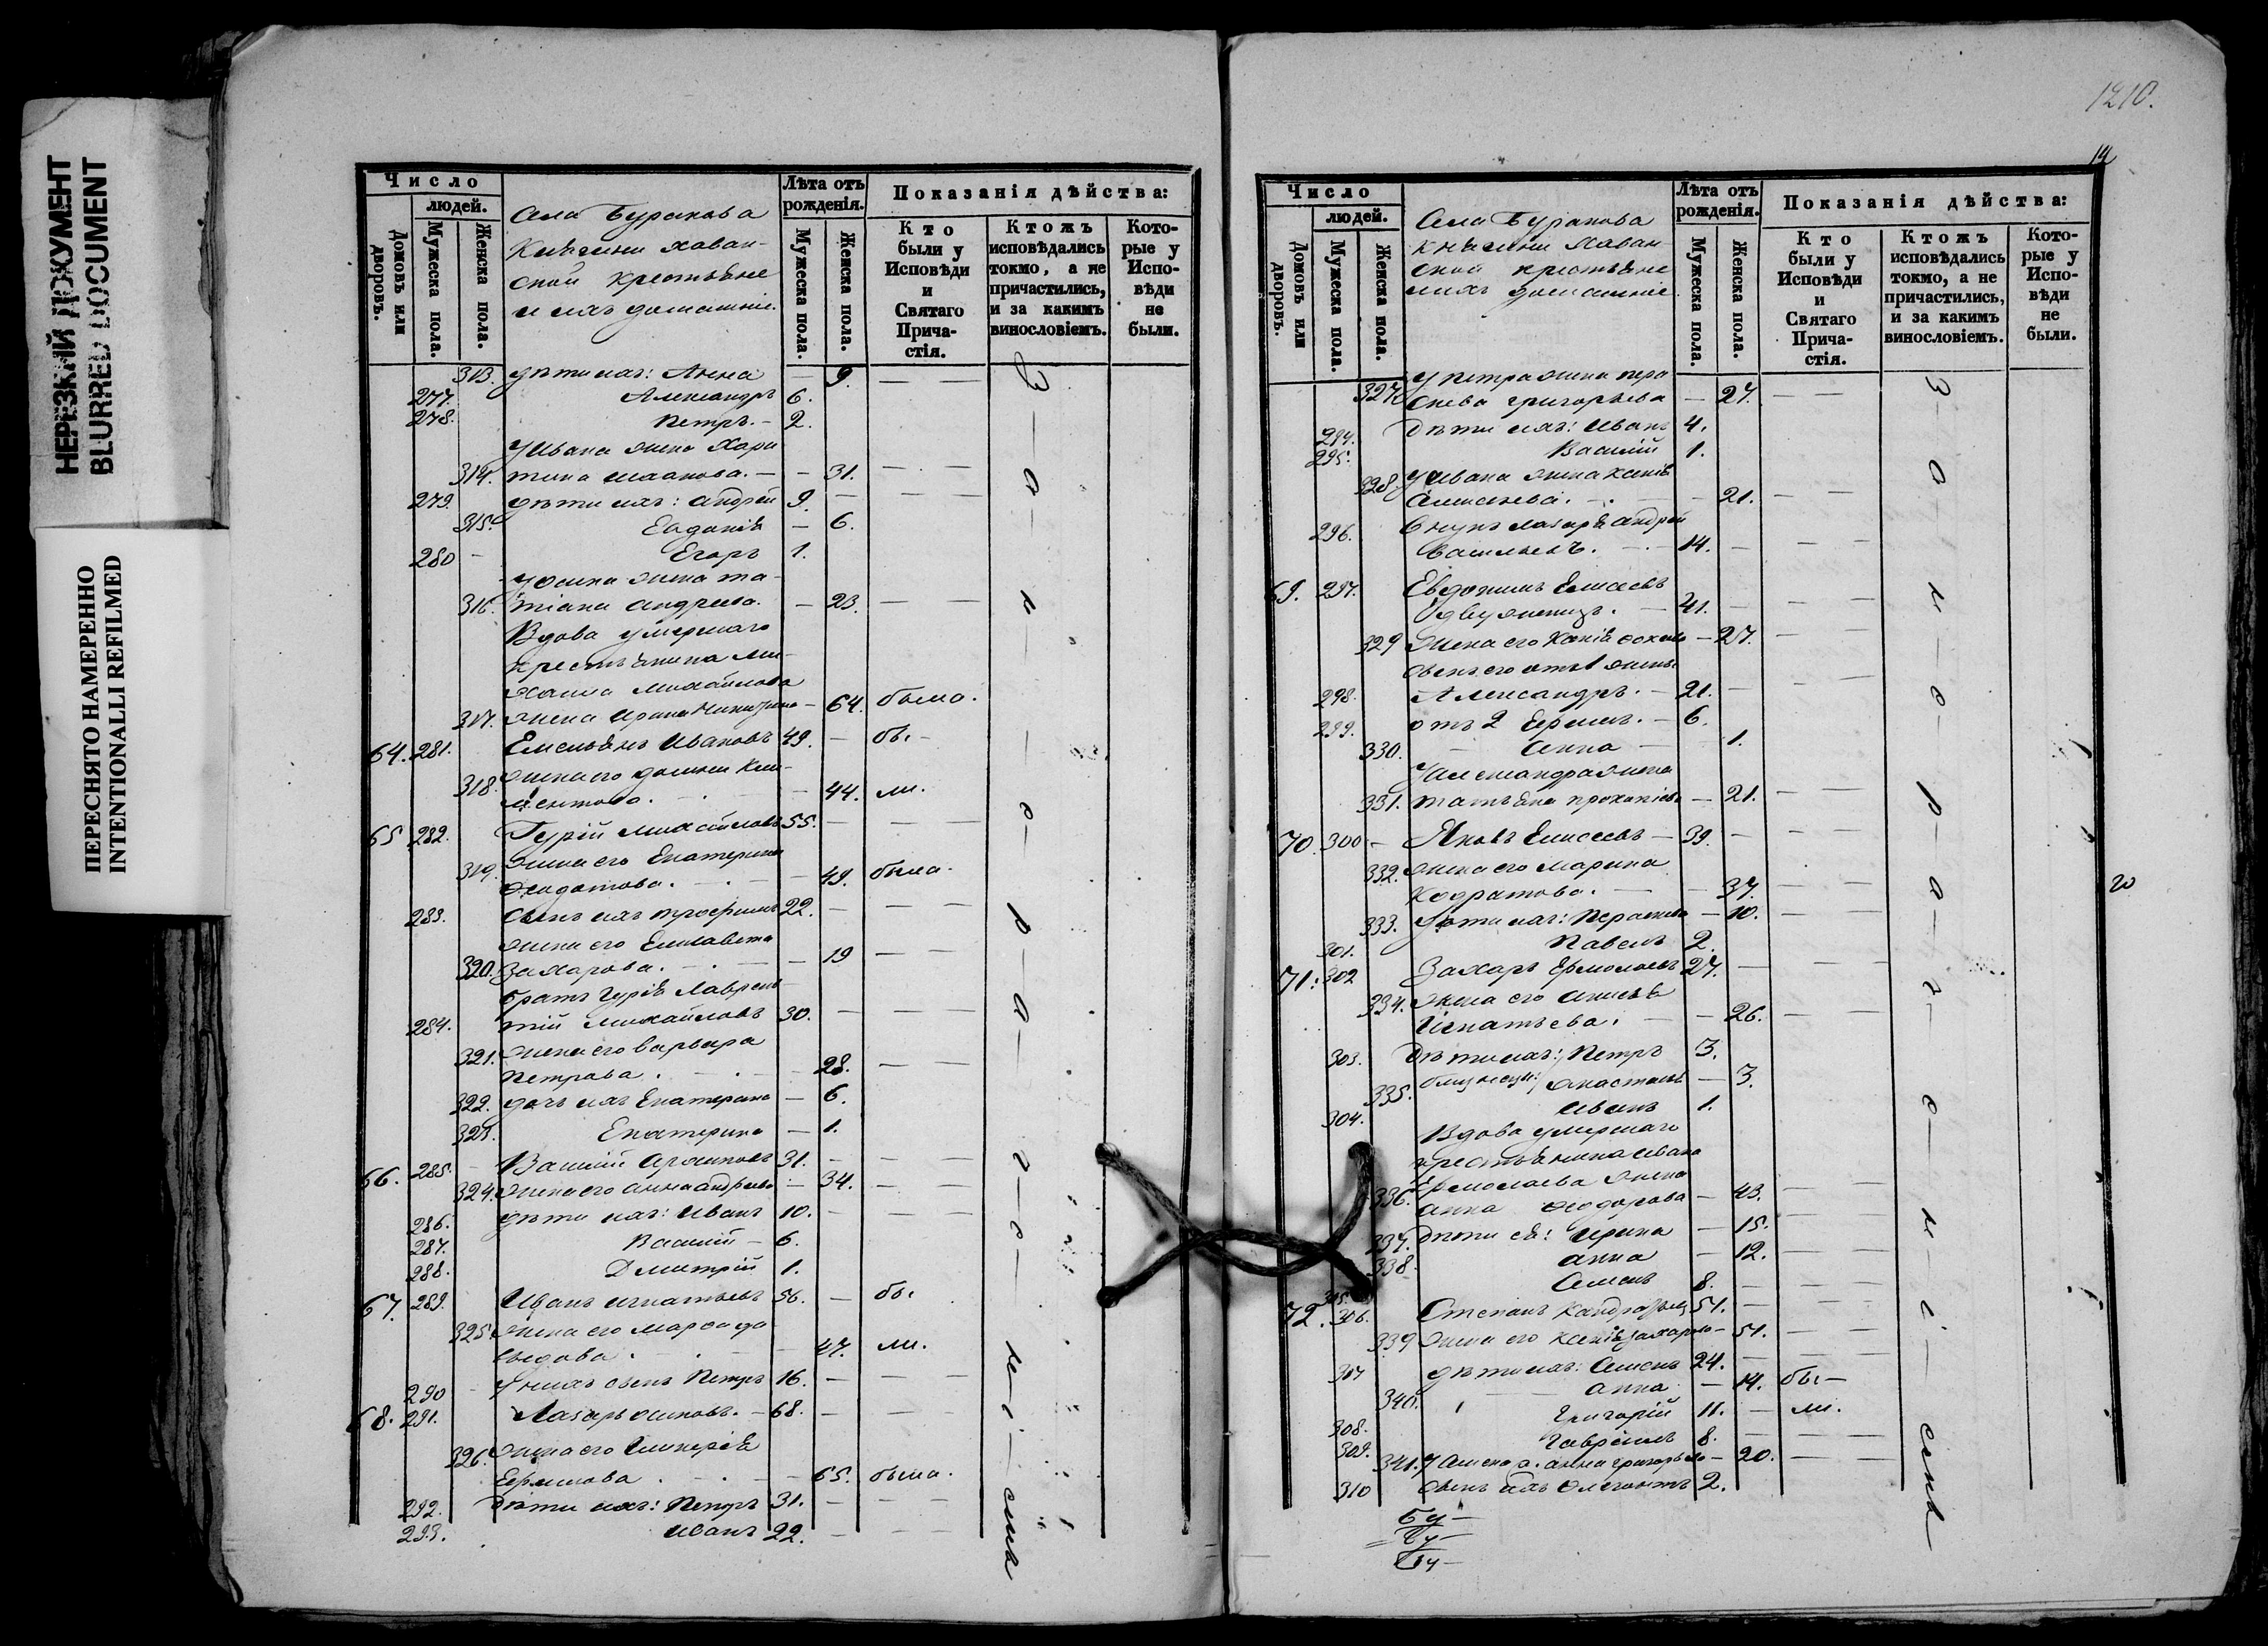 НЕРЕЗКИЙ ДОКУМЕНТ
BLURRED DOCUMENT
ПЕРЕСНЯТО НАМЕРЕННО
INTENTIONALLI REFILMED
Число
людей.
Домовъ или дворовъ.
Мужеска пола.
Женска пола.
Села Буракова
Княгини Хован-
ской крестьяне
и ихъ домашніе.
Лѣта отъ рожденія.
Мужеска пола.
Женска пола.
Показанія дѣйства:
Кто были у Исповѣди и Святаго Прича-стія.
Ктожъ исповѣдались токмо, а не причастились, и за какимъ винословіемъ.
Кото-рые у Испо-вѣди не были.
313. дѣти ихъ: Анна — 9. — —
277. Александръ 6.
278. Петръ. — 2.
У Ивана жена Хари
314. тина Исакова. — — 31. — —
279. дѣти ихъ: Андрей 9. — — —
315. Евдокія — 6.
280 — Егоръ 1.
У Осипа жена та-
316. тіана Андреева. — 23. — —
Вдова умершаго
крестьянина Ми-
хаила Михайлова
317. жена Ирина Никитина — 64. была.
64. 281. Емельянъ Ивановъ 49. — бы —
318. жена его Домна Кли-
ментова. — 44. ли.
65 282. Гурій Михайловъ 55. — — —
319. жена его Екатерина
Федотова. — 49. была.
283. сынъ ихъ Трофимъ 22. — — —
жена его Елисавета
320. Захарова. — 19 —
братъ Гурія Лаврен
284. тій Михайловъ 30. — — —
321. жена его Варвара
Петрова. — 28. — —
322. дочь ихъ Екатерина — 6.
323. Екатерина — 1.
66. 285. — Василій Архиповъ 31. — — —
324. жена его Анна Андреева — 34. — —
286. дѣти ихъ: Иванъ 10. — — —
287. Василій — 6.
288. Дмитрій 1.
67. 289. Иванъ Игнатьевъ 56. — бы
325. жена его Марфа Да
выдова. — 47. ли.
290 — У нихъ сынъ Петръ 16. — — —
68. 291. Лазарь Осиповъ. — 68. — — —
326. жена его Гликерія
Ефимова. — 65. была.
292. дѣти ихъ: Петръ 31. — — —
293. Иванъ 22. — — —
З — а — к — о — р — а — г — о — н — і — емъ
1210.
14
Число
людей.
Домовъ или дворовъ.
Мужеска пола.
Женска пола.
Села Буракова
княгини Хован-
ской крестьяне
и ихъ домашніе.
Лѣта отъ рожденія.
Мужеска пола.
Женска пола.
Показанія дѣйства:
Кто были у Исповѣди и Святаго Прича-стія.
Ктожъ исповѣдались токмо, а не причастились, и за какимъ винословіемъ.
Кото-рые у Испо-вѣди не были.
У Петра жена Пера
327. скева Григорьева — 27. — —
294. Дѣти ихъ: Иванъ 4.
295. Василій 1.
У Ивана жена Ксенія
328. Алексѣева. — 21. — —
Внукъ Лазаря Андрей
296. Васильевъ. — 14. — — —
69. 297. Евдокимъ Елисѣевъ
двуженецъ. — 41. — — —
329 Жена его Ксенія — 27. — —
сынъ его отъ 1 жены
298. Александръ. — 21. — — —
299. отъ 2 Ефимъ. — 6.
330. — Анна — 1.
У Александра жена
331. Татьяна Прокопіева — 21. — —
70. 300 — Яковъ Елисеевъ — 39. — — —
332. жена его Марина
Кодратова. — — 37. — —
333. Дѣти ихъ: Параскева — 10. — —
301. Павелъ 2.
71. 302 Захаръ Ермолаевъ 27. — — —
334. Жена его Анисья
Игнатьева. — — 26. — —
303. Дѣти ихъ: Петръ 3.
335. близнецы: Анастасія — 3.
304. Иванъ 1.
Вдова умершаго
крестьянина Ивана
Ермолаева жена
336. Анна Федорова — 43. — —
337. дѣти ея: Ирина — 15. — —
338. Анна — 12. — —
305. Семенъ 8. — — —
72. 306. Степанъ Кандратьевъ 51. — — —
339 Жена его Ксенія Захарова — 51. — —
307 дѣти ихъ: Семенъ 24. — — —
340. Анна — 14. бы —
308. Григорій 11. — ли.
309. Гавріилъ 8. — — —
341. У Семена ж. Анна Григорьева — 20. — —
310 сынъ ихъ 2.
З — а — к — о — р — а — г — о — н — і — емъ
20